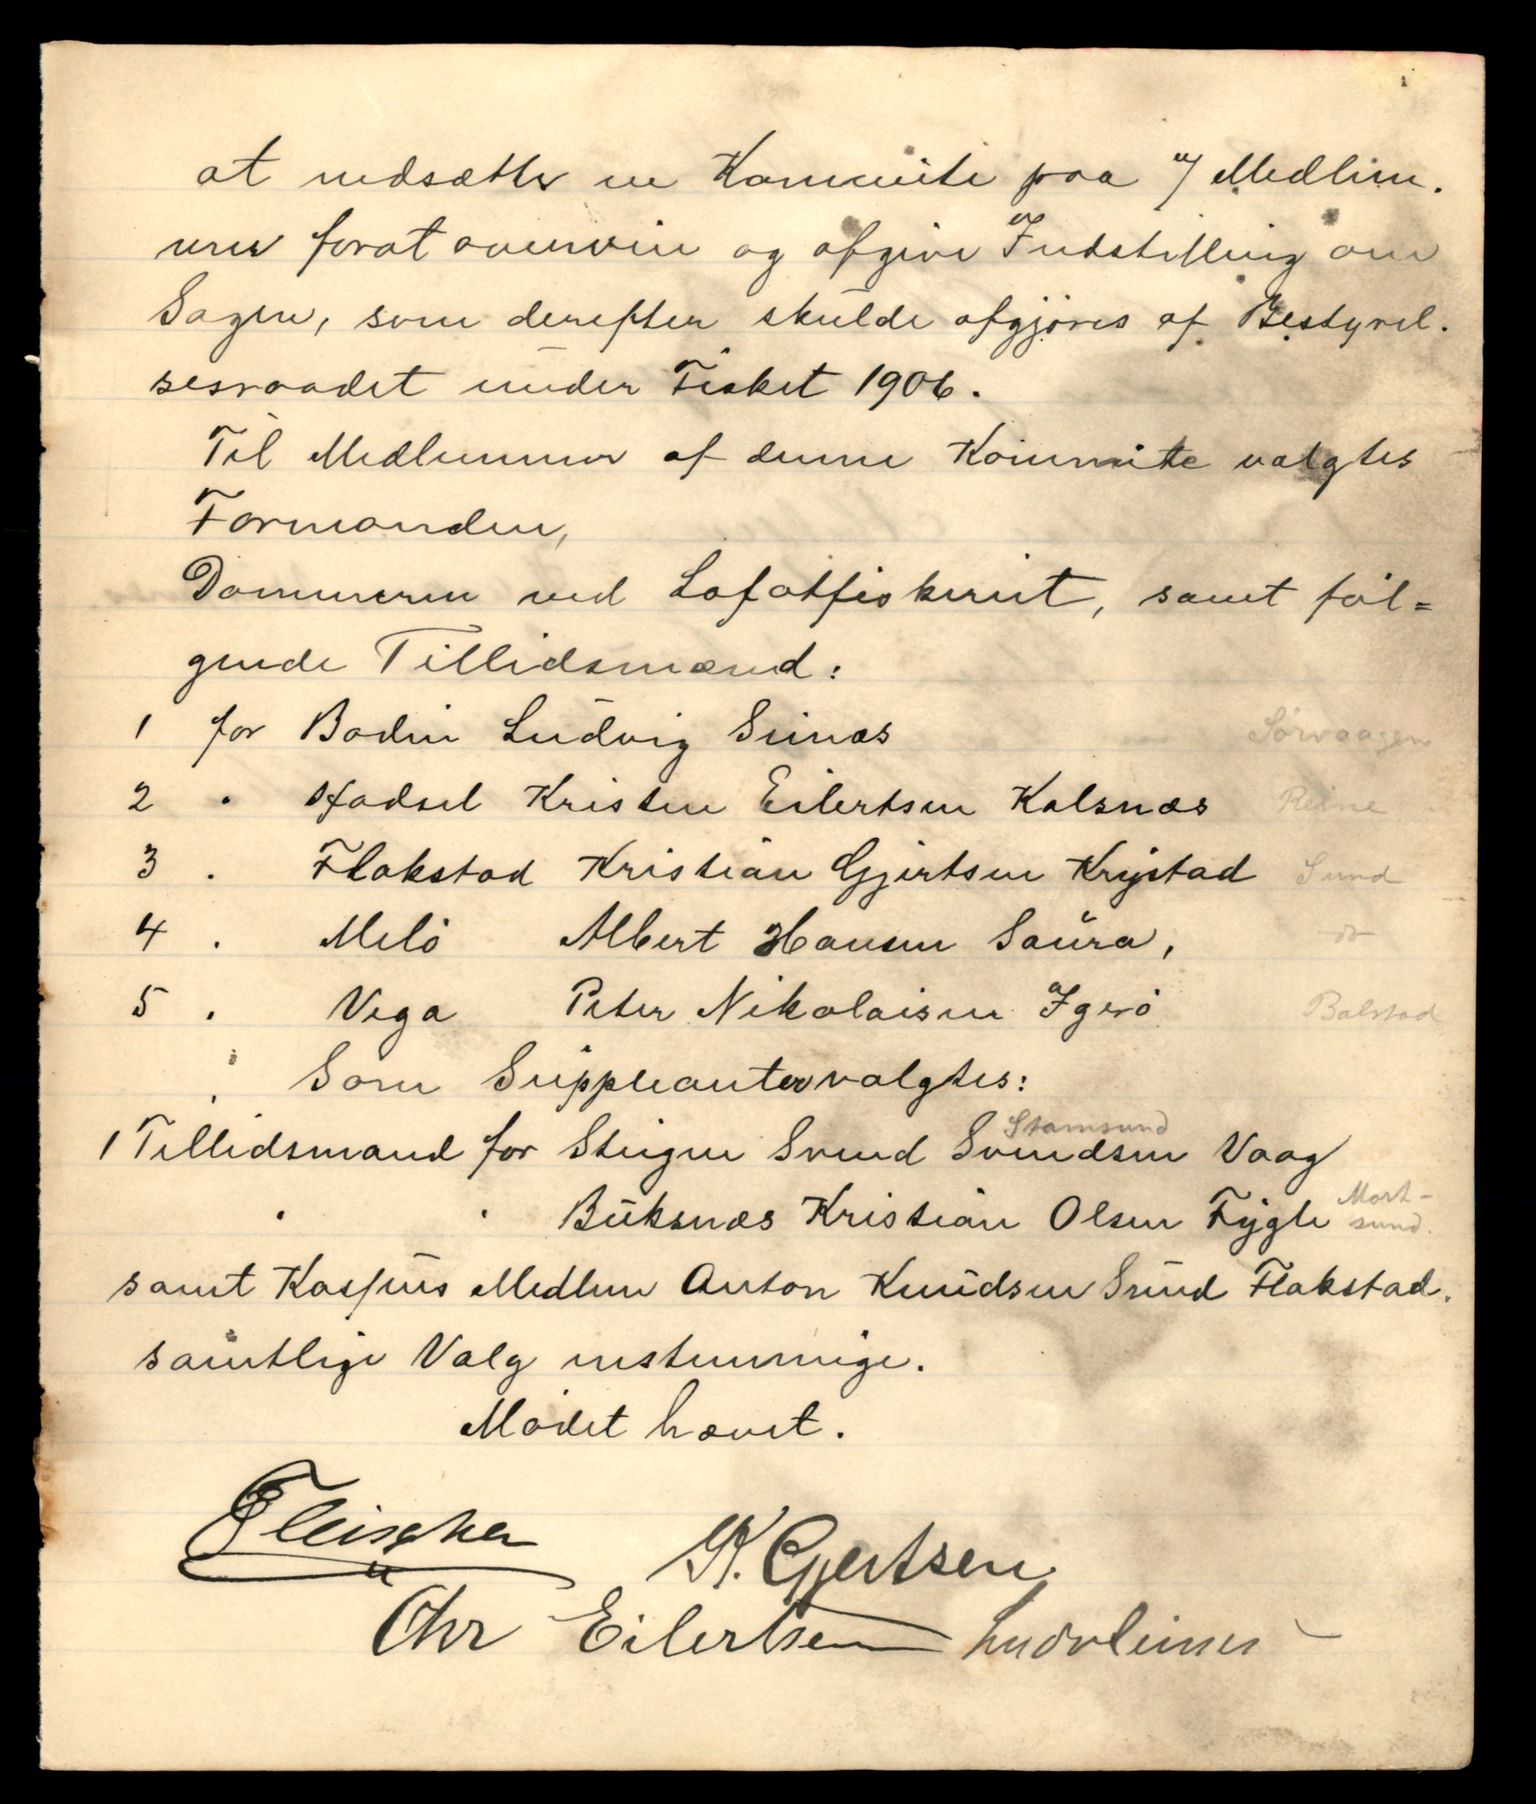 at nedsætte en Kommite paa 7 Medlem.
mer forat overveie og afgive Indstilling om
Sagen, som derefter skulde afgjøres af Bestyrel.
sesraadet under Fisket 1906.
Til Medlemmer af denne Kommite valgtes
Formanden,
Dommeren ved Lofotfiskeriet, samt føl=
gende Tillidsmænd:
1 for Bodin Ludvig Seines Sørvaagen
2 " Hadsel Kristen Eilertsen Kalsnæs Reine
3 " Flakstad Kristian Gjertsen Krystad Sund
4 " Melø Albert Hansen Saura, do
5 " Vega Peter Nikolaisen Igerø Balstad
Som Suppleanter valgtes:
Stamsund
1 Tillidsmand for Steigen Svend Svendsen Vaag
" " Buksnæs Kristian Olsen Fygle Mort-
sund.
samt Kasfius Medlem Anton Knudsen Sund Flakstad.
samtlige Valg enstemmige.
Mødet hævet.
Fleischer K. Gjertsen
Chr Eilertsen Ludv Seines